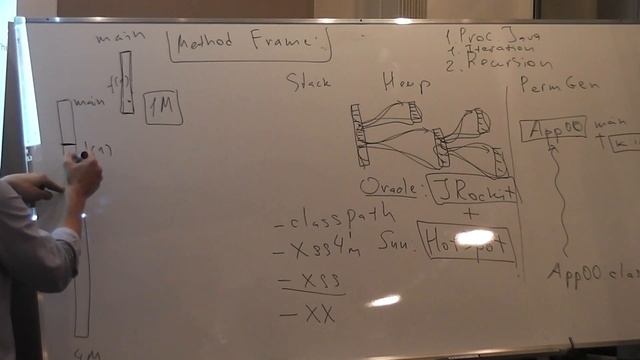 main
Method Frame:
1. Proc. Java
1. Iteration
2. Recursion
Stack
Heap
PermGen
main
1M
App00
Oracle: JRockit
+
Sun: HotSpot
- classpath
- Xss4m
- Xss
- XX
App00 clas
4M